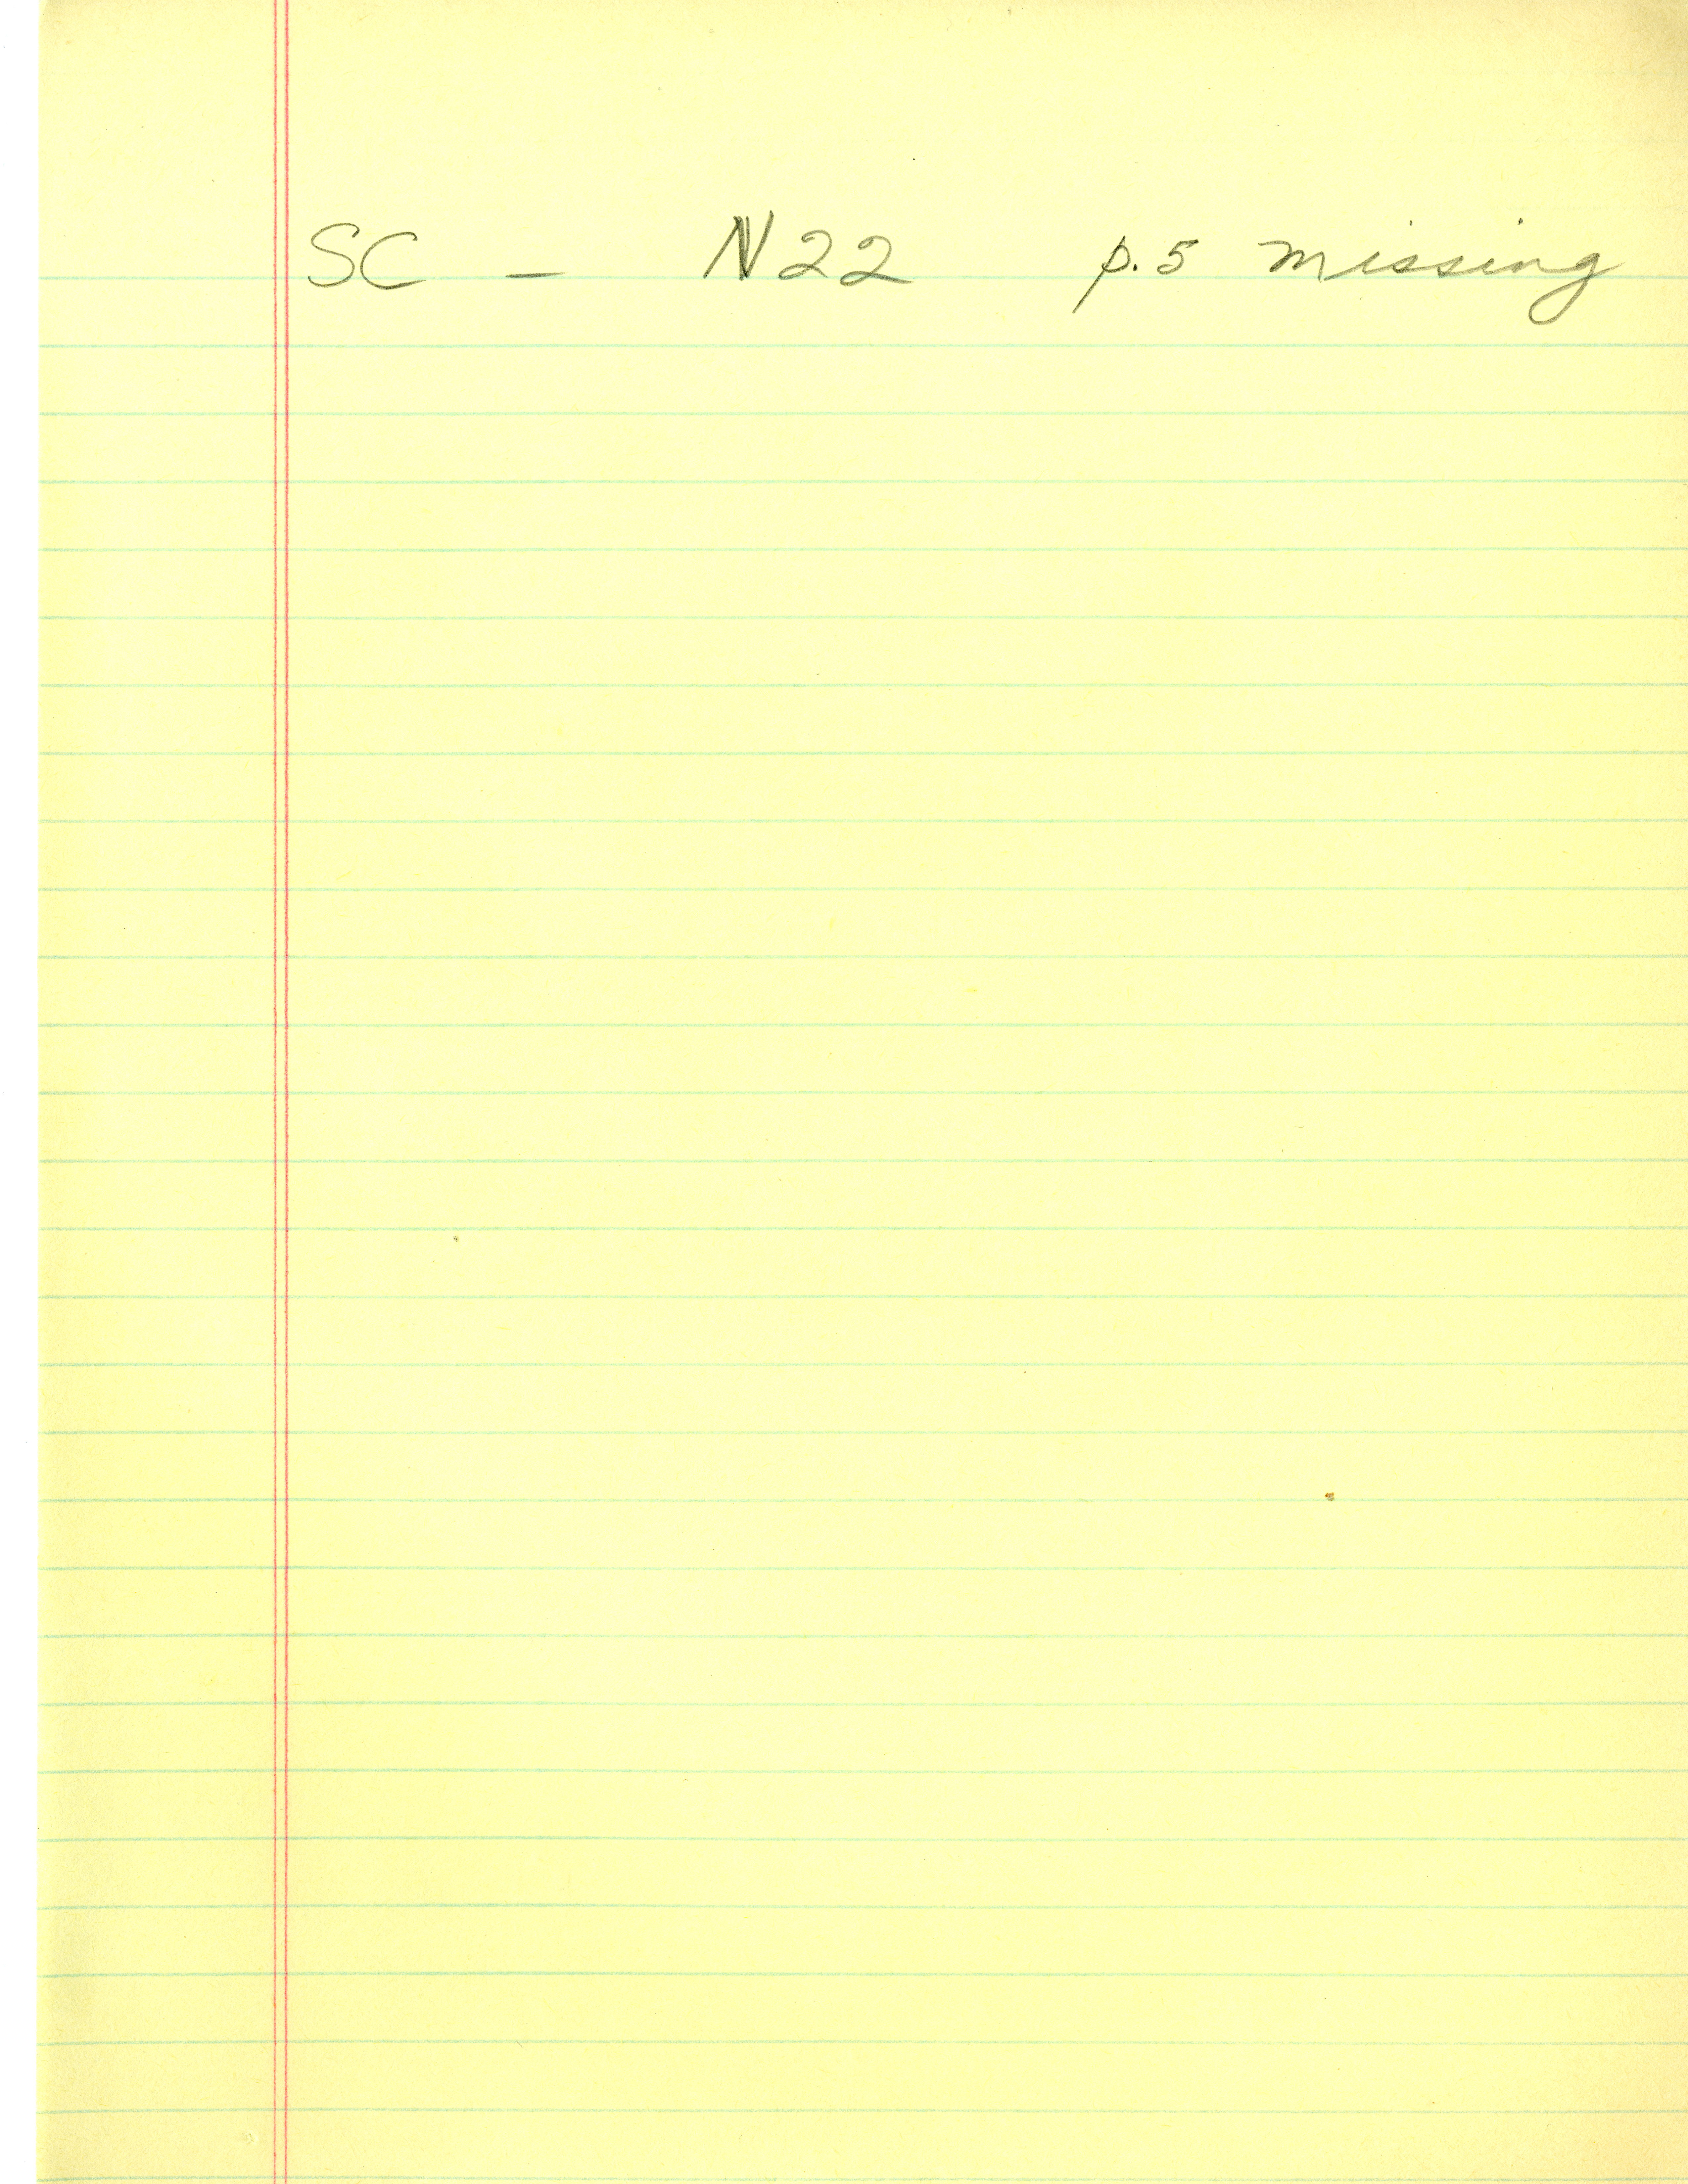 SC - N22 p.5 missing